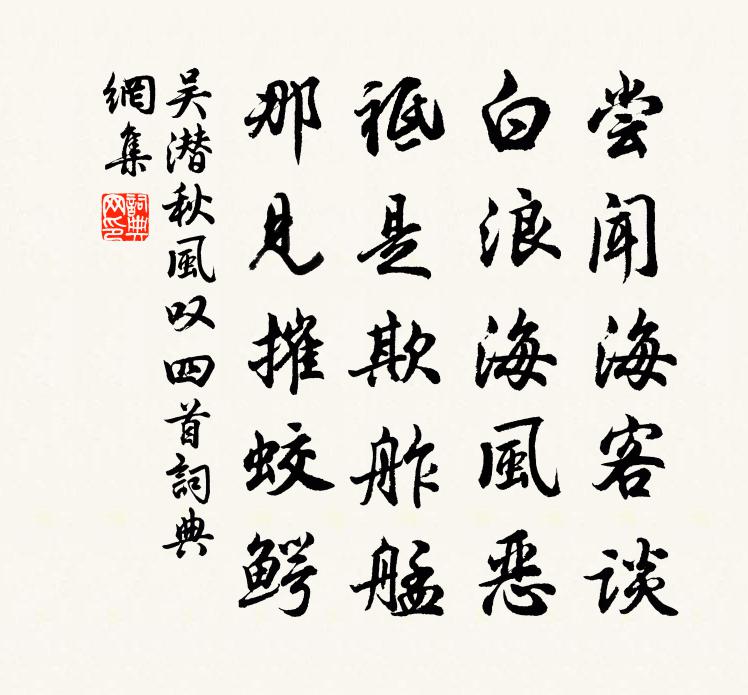 尝闻海客谈
白浪海風恶
祗是欺舴艋
那見摧蛟鳄
吴潜秋風叹四首詞典
網集
詞典
网印